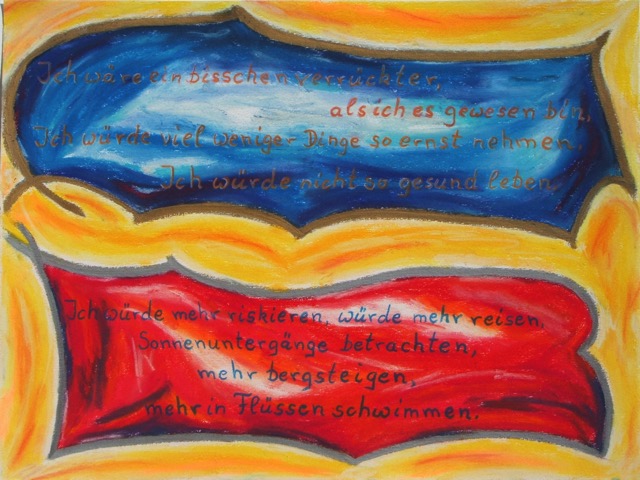 Ich wäre ein bisschen verrückter,
als ich es gewesen bin,
Ich würde viel weniger Dinge so ernst nehmen.
Ich würde nicht so gesund leben.
Ich würde mehr riskieren, würde mehr reisen,
Sonnenuntergänge betrachten,
mehr bergsteigen,
mehr in Flüssen schwimmen.